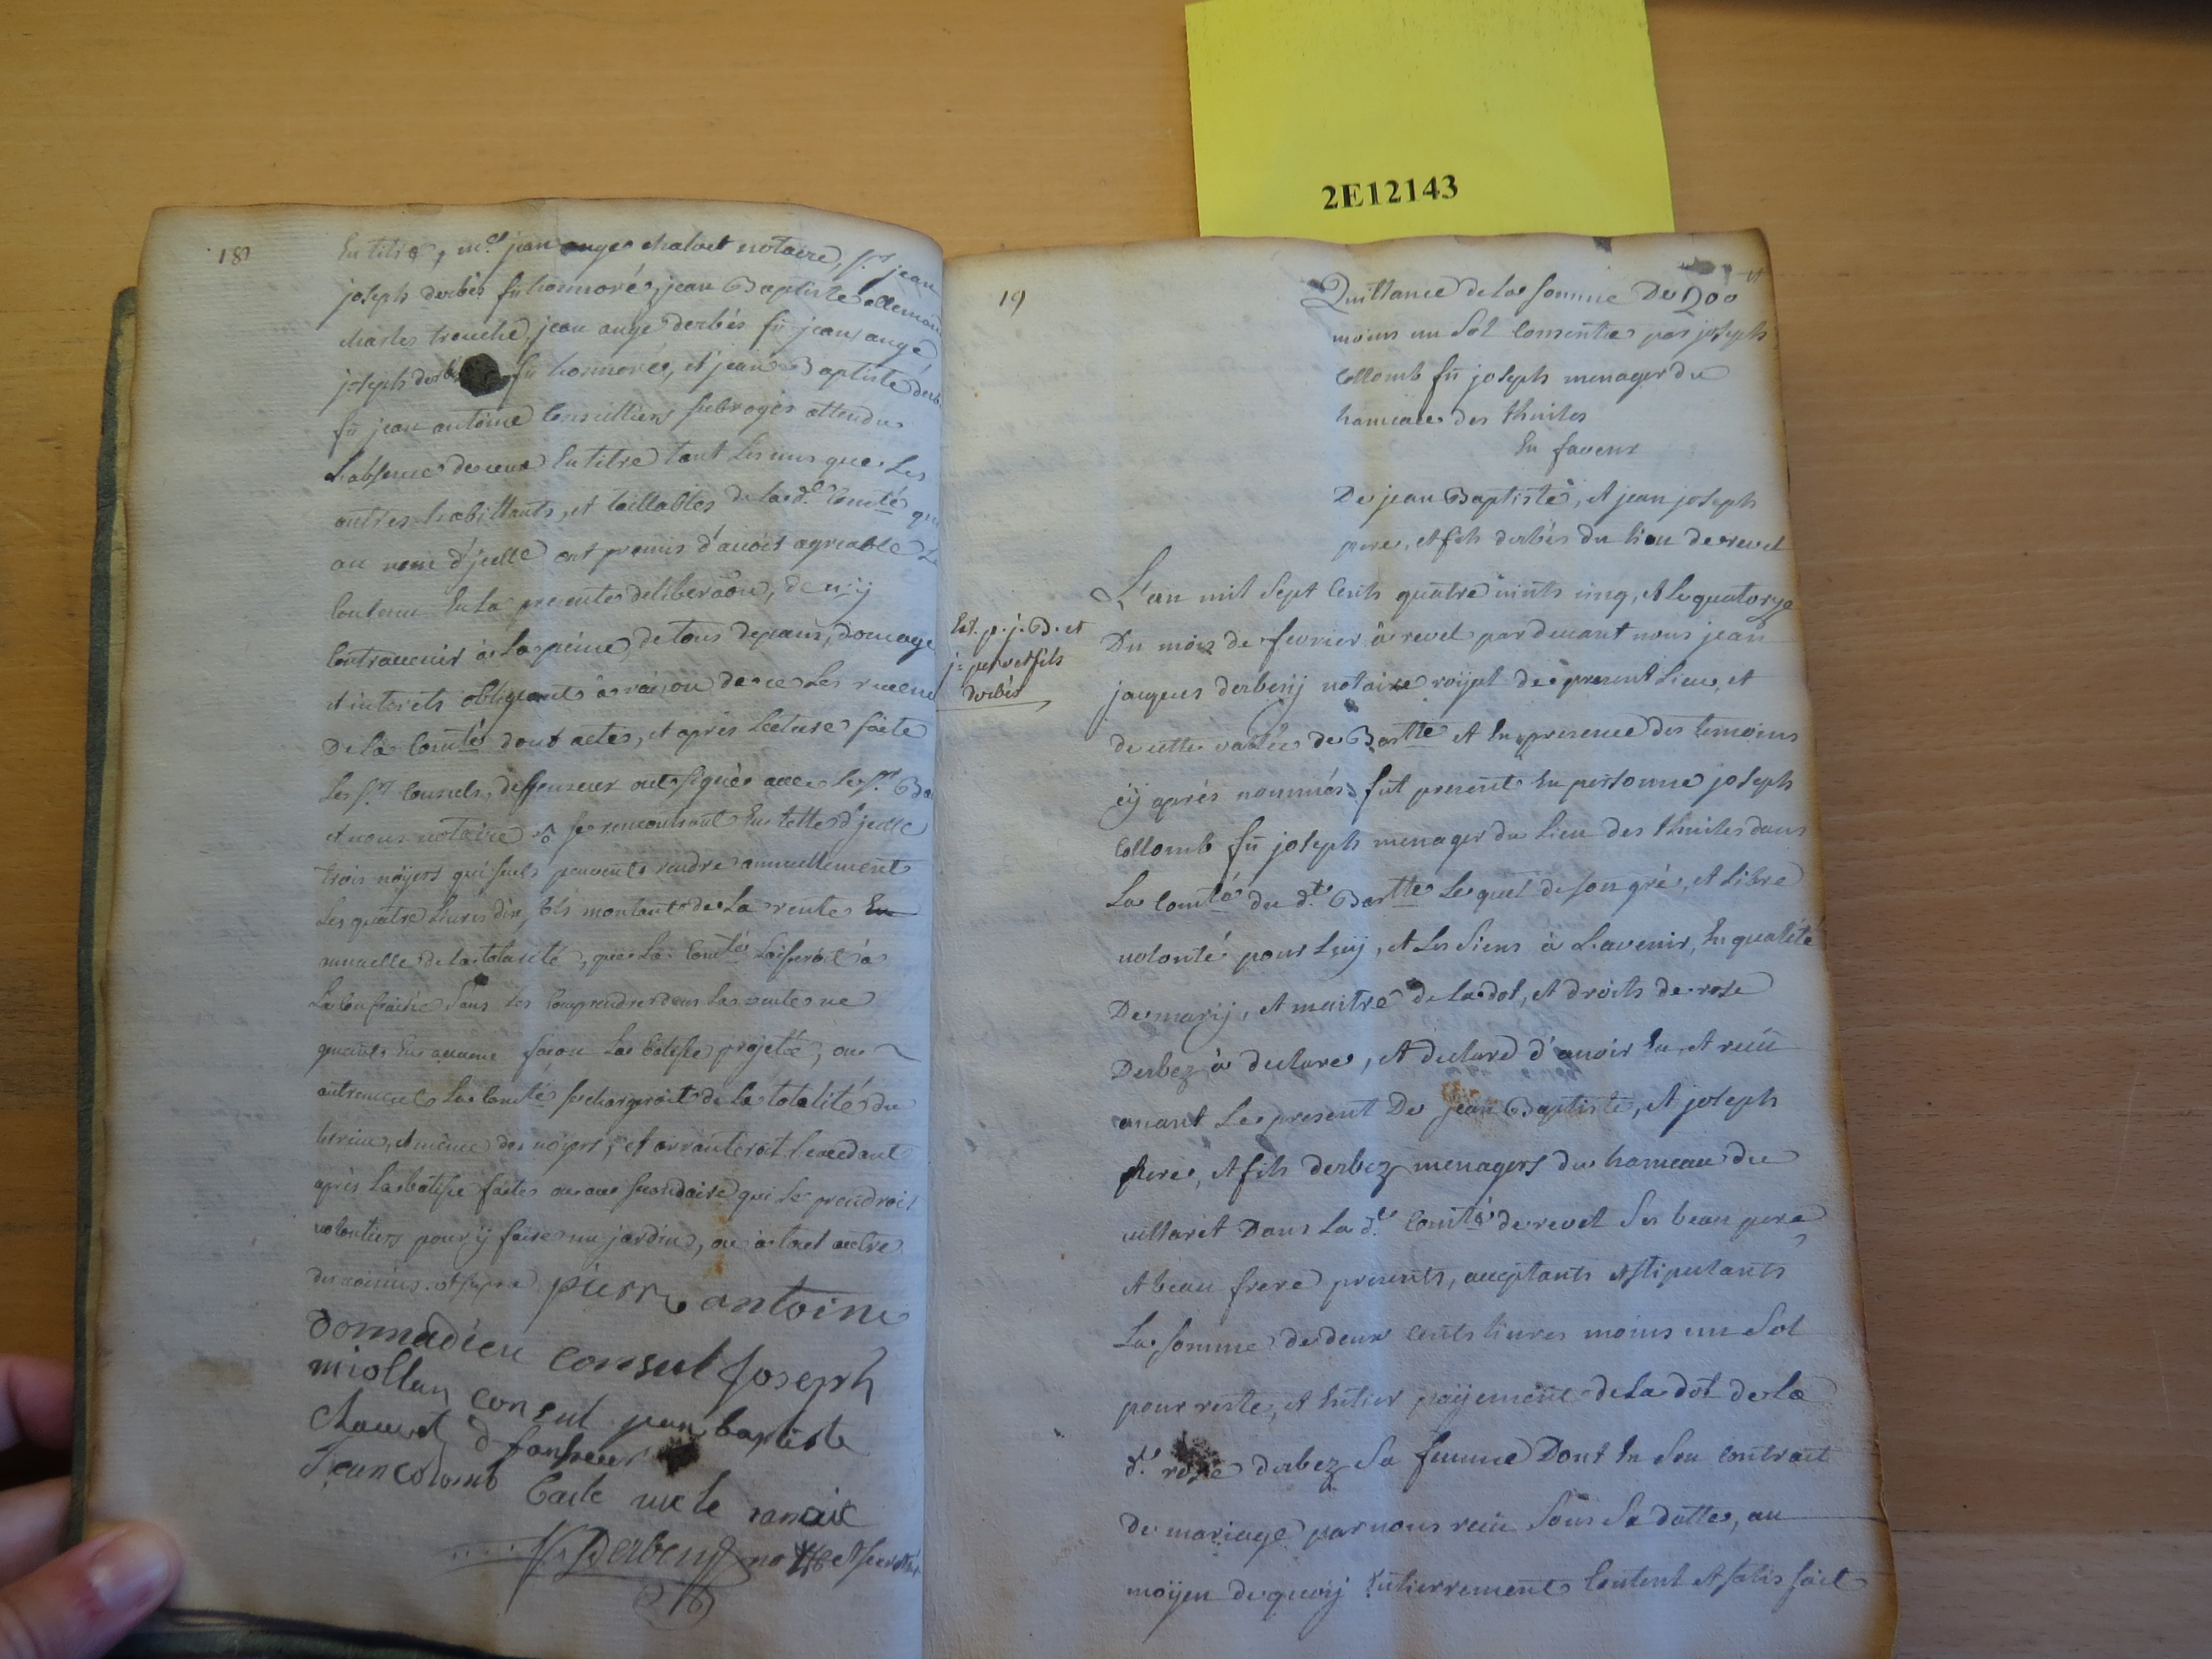 2E12143
18
En titre, m.e jean ange chalvet notaire, s.r jean
joseph derbés fû honnoré, jean Baptiste allemand
charles trouche, jean ange derbés fû jean ange
joseph derbés fû honnoré, et jean Baptiste derb
fû jean antoine Conseillers subrogés attendu
L'absence de ceux En titre tant Les uns que Les
autres habittants, et taillables de lad.e Com̃té qui
au nom d'jcelle ont promis d'avoir agreable Le
Contenu En la presente deliberaõn, de n'ÿ
Contrevenir à La peine de tous depans, domage
et interets obligeants à raison de ce Les revenu
De la Com̃té dont acte, et aprés Lecture faite
Les s.rs Consuls, deffenseur ont signés avec Le s.r
et nous notaire se rencontrant En tette d'jcelle
trois noÿers qui seuls peuvents rendre annuellement
Les quatre Livres dix sols montant de La rente En
annuelle de la totalité, que La Com̃té Laisseroit à
La Confrairie sans Les Comprendre dans La vente ne
genants En aucune façon La batisse projettée, ou
autrement La Com̃té se chargeroit de La totalité du
terrein, et même des noÿers, et arranteroit L'excedant
après La batisse faite ou au secondaire qui Le prendroit
volontiers pour ÿ faire un jardin, ou à tout autre
des voisins. et supra pierre antoine
donnadieu consul Joseph
miollan consul jean baptiste
Chauvet d fanseur
Jean colomb
Derbesÿ no.re et secret.re
19
Quittance de La somme De 200
moins un Sol Consentie par joseph
Collomb fû joseph menager du
hameau des thuiles
En faveur
De jean Baptiste, et jean joseph
pere, et fils derbés du lieu de revel
Ext. p. j. B. et
j: per et fils
derbés
L'an mil Sept Cents quatre vints cinq, et Le quatorze
Du mois de fevrier à revel pardevant nous jean
jacques derbesÿ notaire roÿal de ce present Lieu, et
de cette vallée de Bar.tte et En presence des temoins
cÿ aprés nommés fut present En personne joseph
Collomb fû joseph menager du Lieu des thuiles dans
La Com̃té du d.t Bar.tte Lequel de son gré, et Libre
volonté pour Luÿ, et Les Siens à L'avenir, En qualité
De marÿ, et maitre de la dot, et droits de rose
Derbez à declare, et declare d'avoir Eu, et reçû
avant Le present De jean Baptiste, et joseph
pere, et fils derbez menagers du hameau du
villaret Dans La d.e Com̃té de revel Ses beau pere
et beau frere presents, acceptants et stipulants
La somme de deux Cents livres moins un Sol
pour reste, et Entier paÿement de La dot de La
d.e rose derbez Sa femme Dont En Son Contrait
De mariage par nous reçû Sous Sa datte, au
moÿen de quoÿ Entierrement Content et satisfait